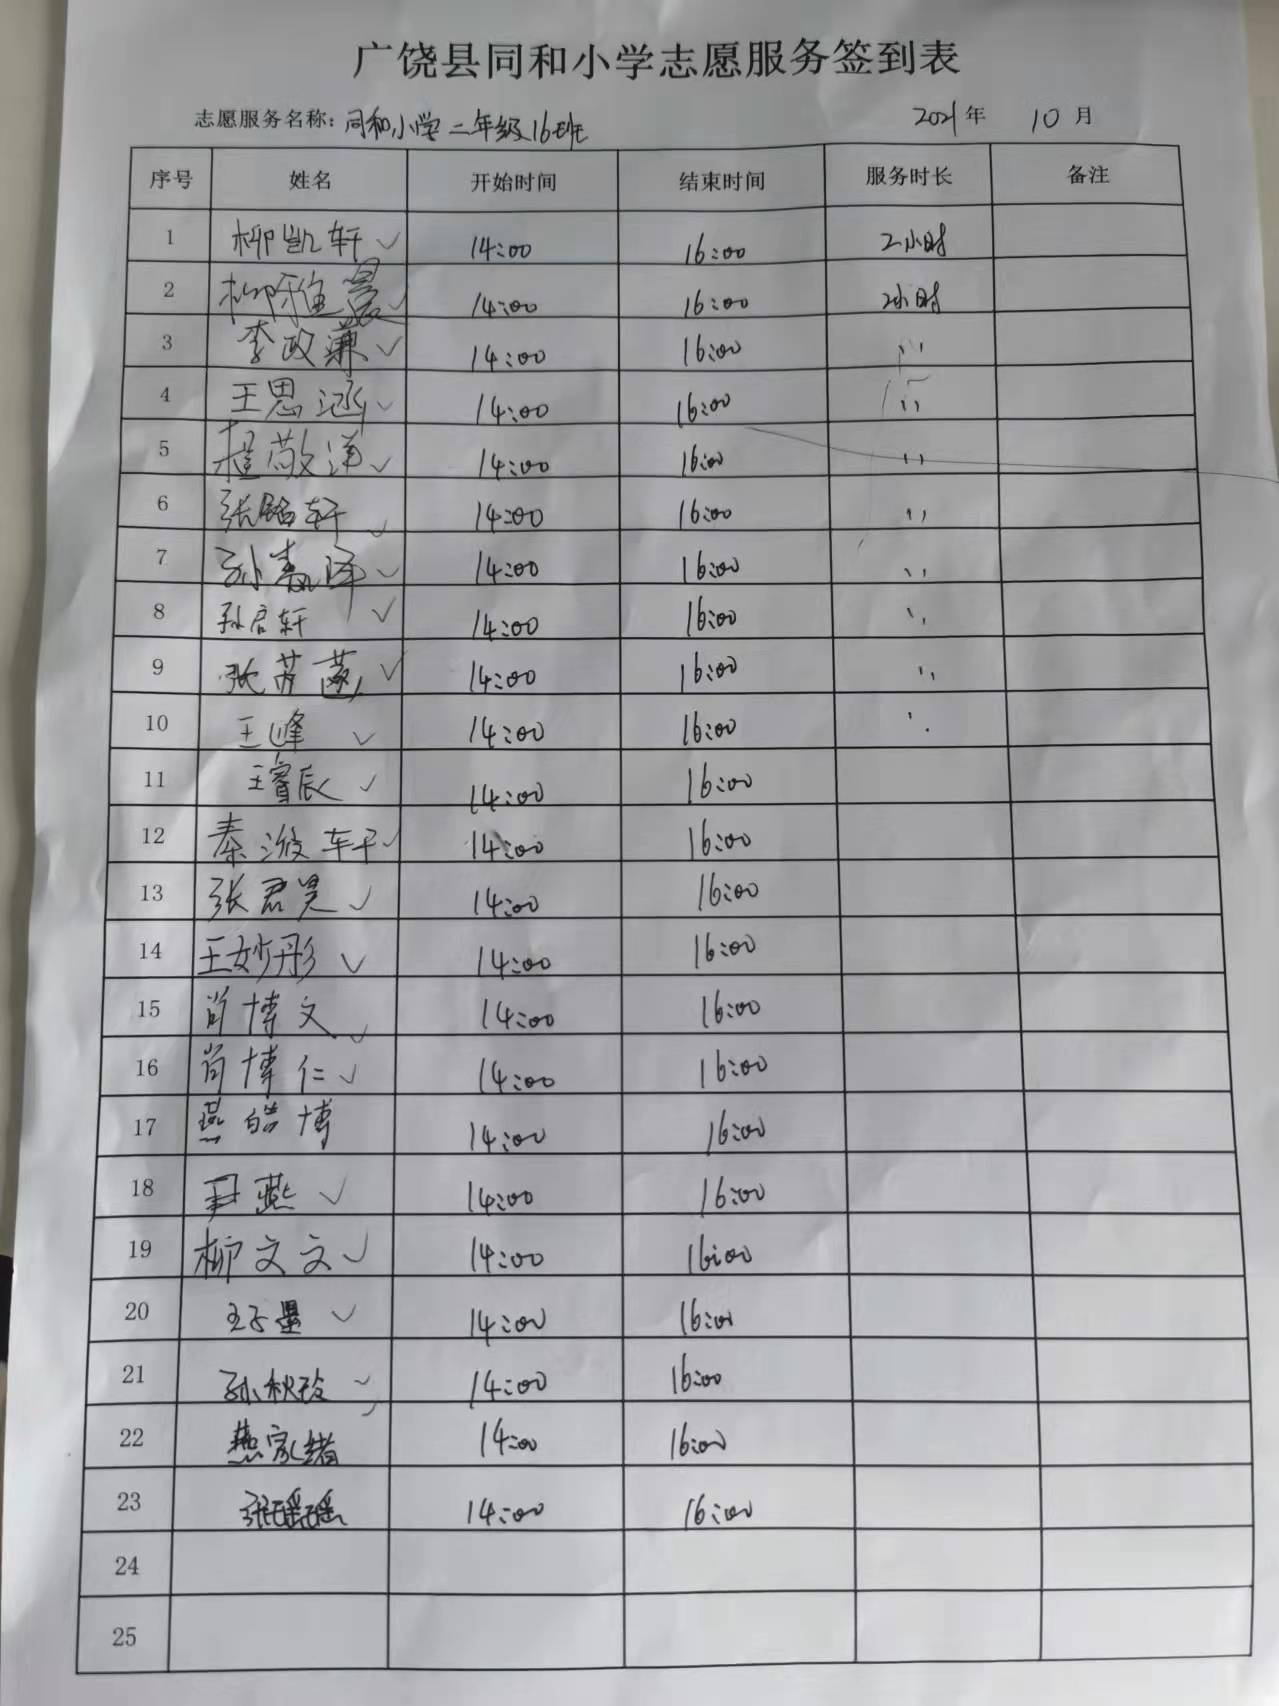 广饶县同和小学志愿服务签到表
志愿服务名称：同和小学二年级16班 2021年 10月
序号 姓名 开始时间 结束时间 服务时长 备注
1 柳凯轩 ✓ 14:00 16:00 2小时
2 柳雅晨 14:00 16:00 2小时
3 李政濂 ✓ 14:00 16:00 〃
4 王思涵 ✓ 14:00 16:00 〃
5 敬洋 ✓ 14:00 16:00 〃
6 张铭轩 ✓ 14:00 16:00 〃
7 孙泽 ✓ 14:00 16:00 〃
8 孙启轩 ✓ 14:00 16:00 〃
9 张芮菡 ✓ 14:00 16:00 〃
10 王峰 ✓ 14:00 16:00 〃
11 王睿辰 ✓ 14:00 16:00
12 秦滺轩 ✓ 14:00 16:00
13 张君昊 ✓ 14:00 16:00
14 王妙彤 ✓ 14:00 16:00
15 肖博文 ✓ 14:00 16:00
16 肖博仁 ✓ 14:00 16:00
17 燕皓博 14:00 16:00
18 尹燕 ✓ 14:00 16:00
19 柳文文 ✓ 14:00 16:00
20 王子墨 ✓ 14:00 16:00
21 孙秋玲 ✓ 14:00 16:00
22 燕家绪 14:00 16:00
23 张瑶瑶 14:00 16:00
24
25